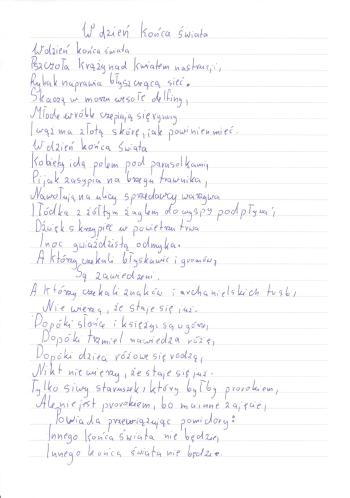 W dzień końca świata
W dzień końca świata
Pszczoła krąży nad kwiatem nasturcji,
Rybak naprawia błyszczącą sieć.
Skaczą w morzu wesołe delfiny,
Młode wróble czepiają się rynny
I wąż ma złotą skórę, jak powinien mieć.
W dzień końca świata
Kobiety idą polem pod parasolkami,
Pijak zasypia na brzegu trawnika,
Nawołują na ulicy sprzedawcy warzywa
I łódka z żółtym żaglem do wyspy podpływa,
Dźwięk skrzypiec w powietrzu trwa
I noc gwiaździstą odmyka.
A którzy czekali błyskawic i gromów,
Są zawiedzeni.
A którzy czekali znaków i archanielskich trąb,
Nie wierzą, że staje się już.
Dopóki słońce i księżyc są w górze,
Dopóki trzmiel nawiedza różę,
Dopóki dzieci różowe się rodzą,
Nikt nie wierzy, że staje się już.
Tylko siwy staruszek, który byłby prorokiem,
Ale nie jest prorokiem, bo ma inne zajęcie,
Powiada przewiązując pomidory:
Innego końca świata nie będzie,
Innego końca świata nie będzie.